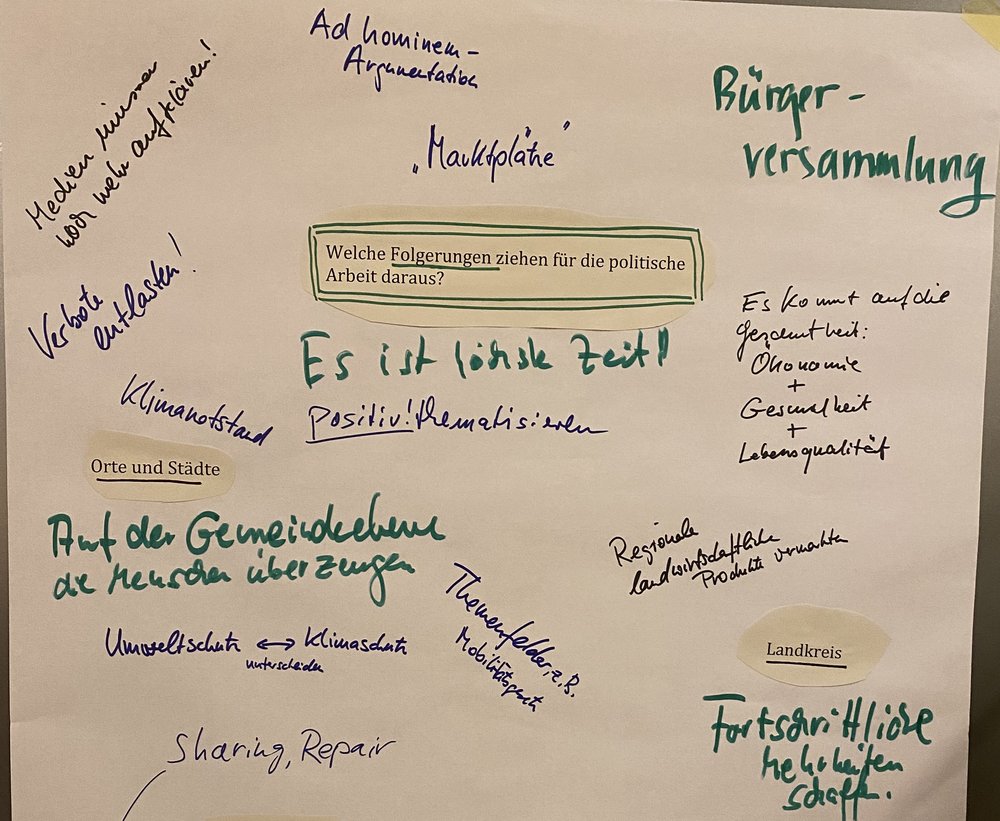 Ad hominem-
Argumentation
Medien müssen
noch mehr aufklären!
Bürger-
versammlung
„Marktplätze"
Welche Folgerungen ziehen für die politische
Arbeit daraus?
Verbote
entlasten!
Es ist höchste Zeit!!
Es kommt auf die
Gesamtheit:
Ökonomie
+
Gesundheit
+
Lebensqualität
Klimanotstand
positiv! thematisieren
Orte und Städte
Auf der Gemeindeebene
die Menschen überzeugen
Regionale
landwirtschaftliche
Produkte vermarkten
Themenfelder, z.B.
Umweltschutz ↔ Klimaschutz
unterscheiden
Landkreis
Fortschrittliche
Mehrheiten
schaffen.
Sharing, Repair